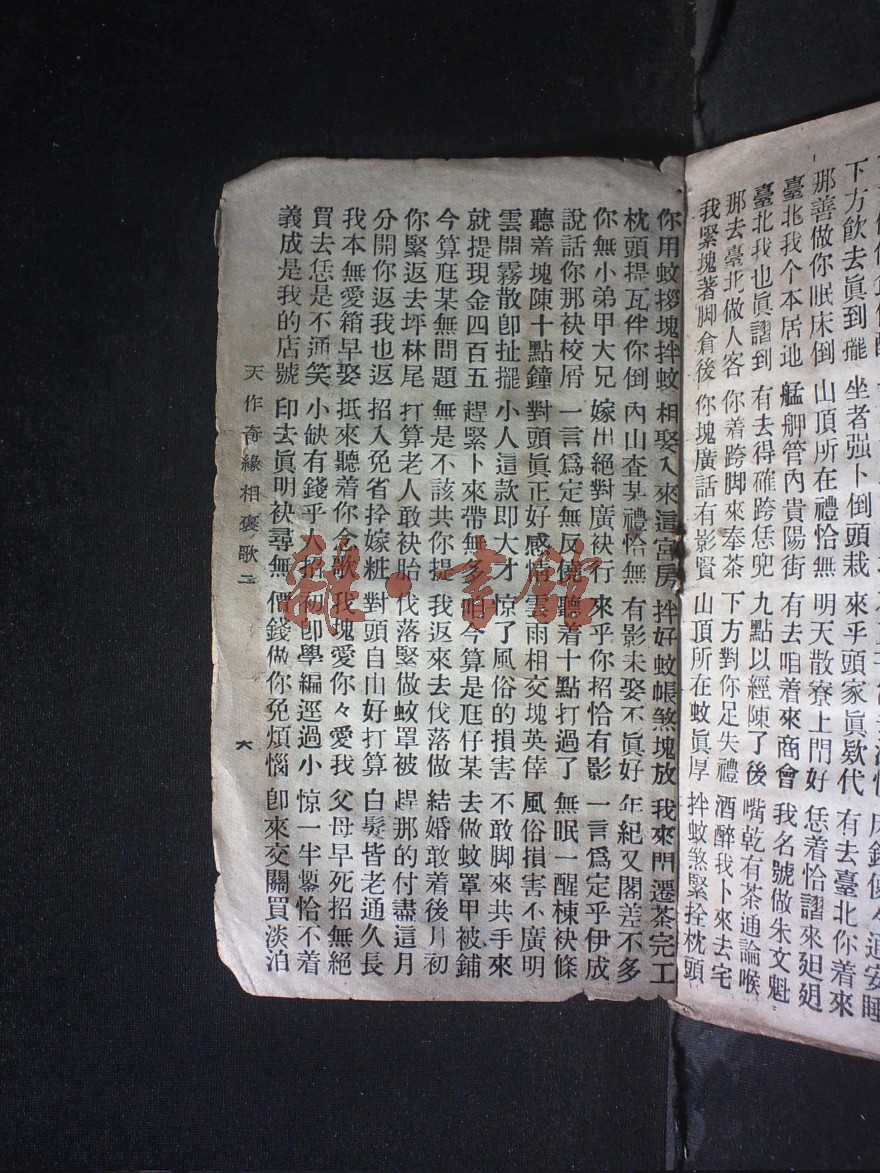 下方飲去眞到攏 坐者强卜倒頭栽 來乎頭家眞欵代 有去臺北你着來
那善做你眠床倒 山頂所在禮恰無 明天散寮上門好 恁着恰謥來廻
臺北我个本居地 艋舺管內貴陽街 有去咱着來商會 我名號做朱文魁
臺北我也眞謥到 有去得確跨恁兜 九點以經陳了後 嘴乾有茶通論喉
那去臺北做人客 你着跨脚來奉茶 下方對你足失禮 酒醉我卜來去宅
我緊塊著脚倉後 你塊廣話有影賢 山頂所在蚊眞厚 拌蚊煞緊拴枕頭
你用蚊摎塊拌蚊 相娶入來這宮房 拌好蚊帳煞塊放 我來門遷茶完工
枕頭提瓦伴你倒 內山查某禮恰無 有影未娶不眞好 年紀又閣差不多
你無小弟甲大兄 嫁出絕對廣袂行 來乎你招恰有影 一言爲定乎伊成
說話你那袂校屑 一言爲定無反僥 聽着十點打過了 無眠一醒棟袂條
聽着塊陳十點鐘 對頭眞正好感情 雲雨相交塊英倖 風俗損害不廣明
雲開霧散卽扯擺 小人這款即大才 惊了風俗的損害 不敢脚來共手來
就提現金四百五 趕緊卜來帶無多 咱今算是尫仔某 去做蚊罩甲被鋪
今算尫某無問題 無是不該共你提 我返來去伐落做 結婚敢着後月初
你緊返去坪林尾 打算老人敢袂胎 伐落緊做蚊罩被 趕那的付盡這月
分開你返我也返 招入免省拴嫁粧 對頭自由好打算 白髮皆老通久長
我本無愛箱早娶 抵來聽着你今歌 我塊愛你々愛我 父母早死招無絕
買去恁是不通笑 小缺有錢乎人招 初卽學編逕過小 惊一半鏨恰不着
義成是我的店號 印去眞明袂尋無 價錢做你免煩惱 卽來交關買淡泊
天作奇緣相褒歌二 六
雜·書館